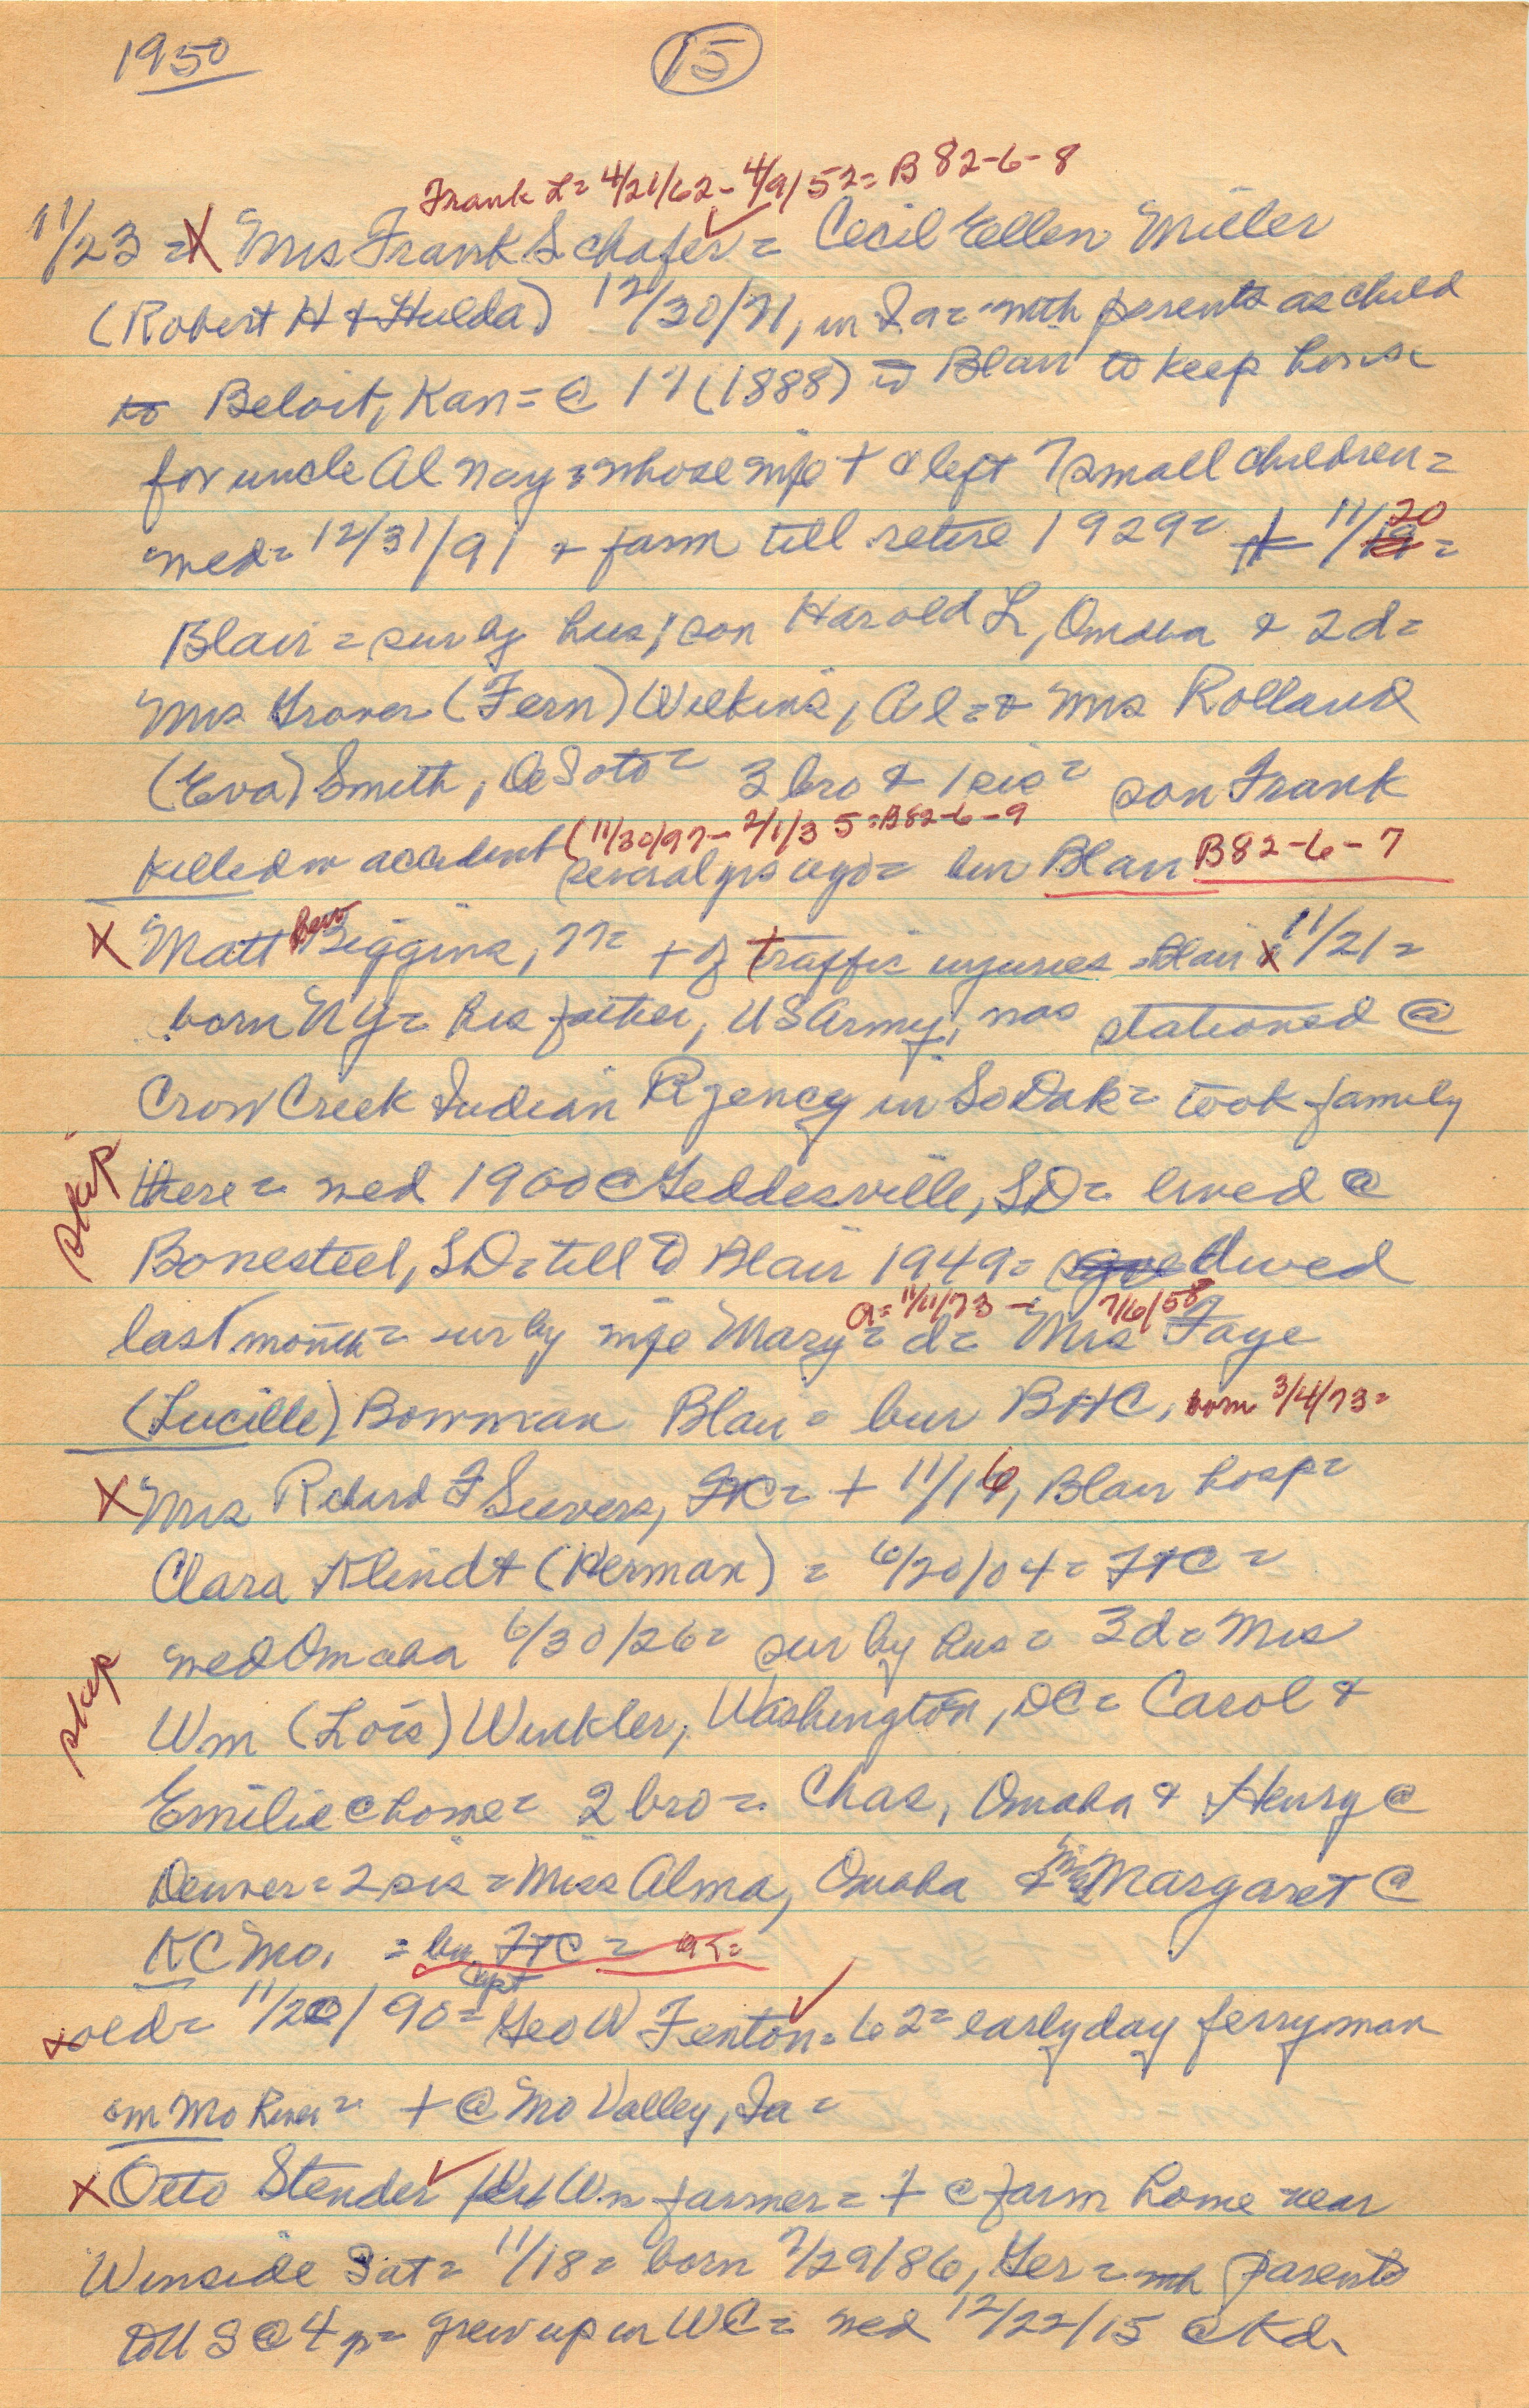 1950
15
Frank L= 4/21/62 - 4/9/52= B 82-6-8
11/23 = X Mrs Frank Schafer = Cecil Ellen Miller
(Robert H & Hulda) 12/30/71, in Ia = with parents as child
to Beloit, Kan = @ 17 (1888) to Blair to keep house
for uncle Al Nay = whose wife + & left 7 small children =
med = 12/31/91 & farm till retire 1929 = + 11/20 =
Blair = sur by hus, son Harold L, Omaha & 2d =
Mrs Grover (Fern) Wilkins, Al = & Mrs Rolland
(Eva) Smith, DeSoto = 3 bro & 1 sis = son Frank
(11/30/97 - 2/1/35 = B82-6-9
killed in accident several yrs ago = bur Blair B82-6-7
X Matt Beggins, 77 = + of traffic injuries = Blair X 11/21 =
born NY = his father, US Army, was stationed @
Crow Creek Indian Agency in SoDak = took family
skip
there = med 1900 @ Geddesville, SD = lived @
Bonesteel, SD = till to Blair 1949 = lived
a = 11/11/73 - 7/6/58
last month = sur by wife Mary = d = Mrs Faye
(Lucille) Bowman Blair = bur BHC, born 3/4/73 =
X Mrs Richard F Seevers, FtC = + 11/16, Blair hosp =
Clara Klindt (Herman) = 6/20/04 = FtC =
med Omaha 6/30/26 = sur by hus = 3d = Mrs
skip
Wm (Lois) Winkler, Washington, DC = Carol &
Emilie @ home = 2 bro = Chas, Omaha & Henry @
Denver = 2 sis = Miss Alma, Omaha & Miss Margaret @
KC Mo. = bu FtC =
Capt
X old = 11/20/90 = Geo W Fenton = 62 = early day ferryman
on Mo River = + @ Mo Valley, Ia =
X Otto Stender Wn farmer = + @ farm home near
Winside Sat = 11/18 = born 7/29/86, Ger = with parents
to US @ 4 yr = grew up in WC = med 12/22/15 @ Kd.